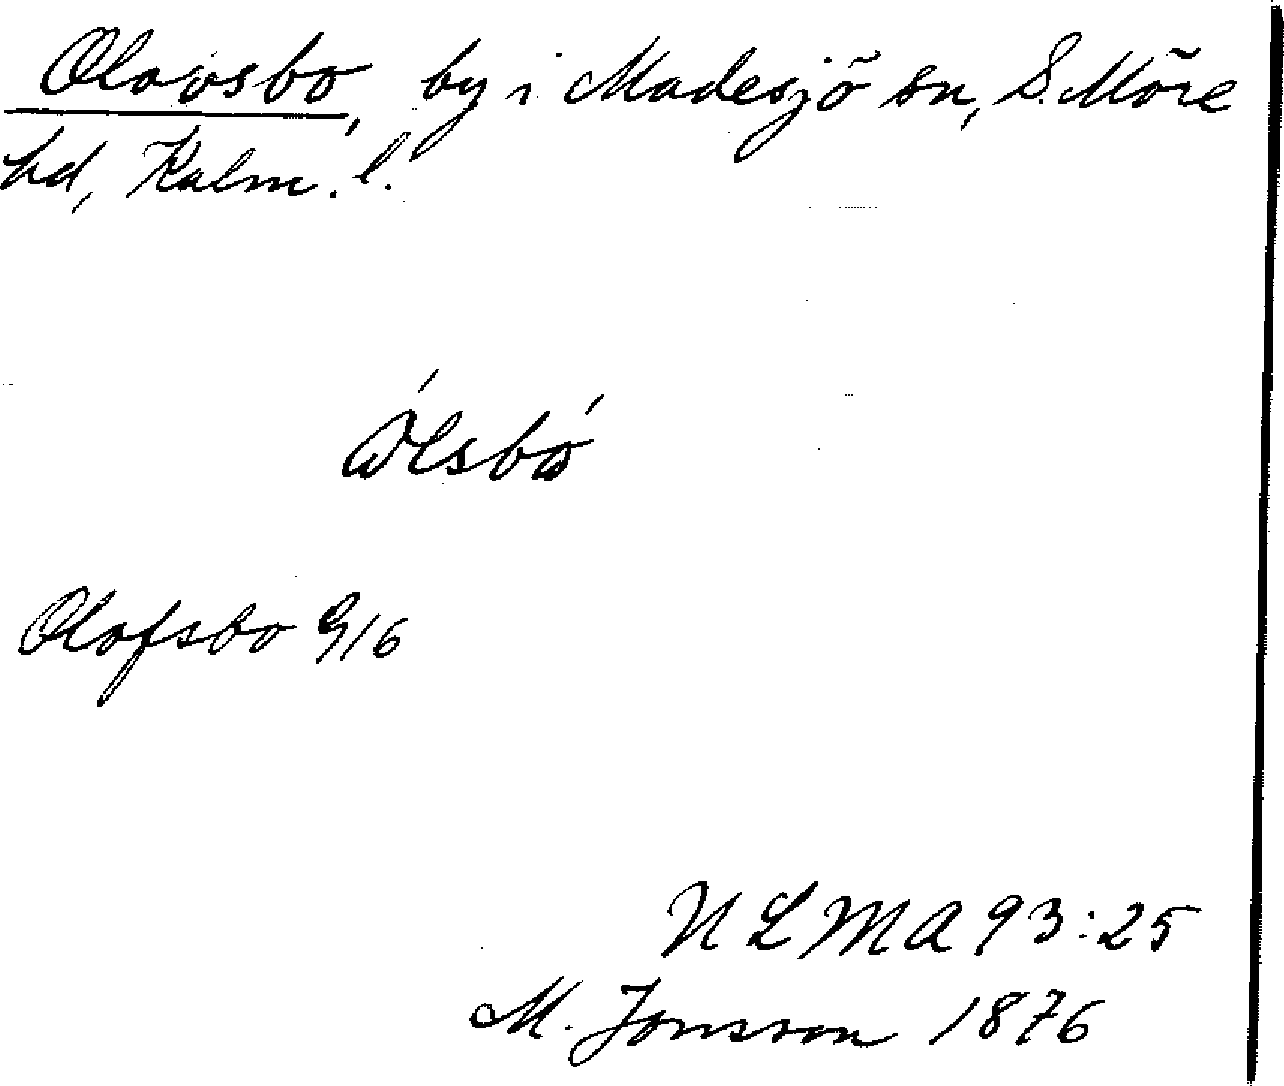 Olovsbo, by i Madesjö sn, S. Möre
hd, Kalm. l.
Olofsbo G16
NLMA 93:25
M. Jonsson 1876